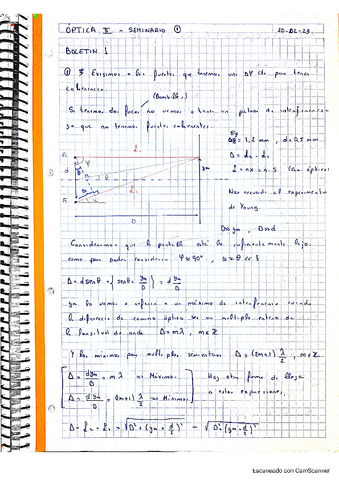 ÓPTICA II - SEMINARIO ① 20-02-23
BOLETIN 1
① Exigimos a las fuentes que tengamos una cte para tener
coherencia.
(Bombilla)
Si tenemos dos focos no vemos a tener un patrón de interferencia
ya que no tenemos fuentes coherentes.
= 1,2 mm, d = 0,5 mm
Δ = L₂ - L₁
(Cam. óptico)
Nos recuerda al experimento
de Young.
D>>yₘ, D>>d
D
Consideramos que la pantalla está lo suficientemente lejos
como para poder considerar φ≈90°, α≈θ<<1
Δ = d senθ = { senθ = yₘ/D } = d yₘ/D
yₘ lo vamos a referir a un máximo de interferencia cuando
la diferencia de camino óptico sea un múltiplo entero de
la longitud de onda Δ = mλ, m∈Z
Y los mínimos para múltiplos semienteros Δ = (2m+1) λ/2, m∈Z
Δ = d yₘ/D = mλ ⇒ Máximo.
Hay otra forma de llegar
Δ = d yₘ/D = (2m+1) λ/2 ⇒ Mínimo.
a estas expresiones.
Δ = L₂ - L₁ = √(D² + (yₘ + d/2)²) - √(D² + (yₘ - d/2)²)
Escaneado con CamScanner